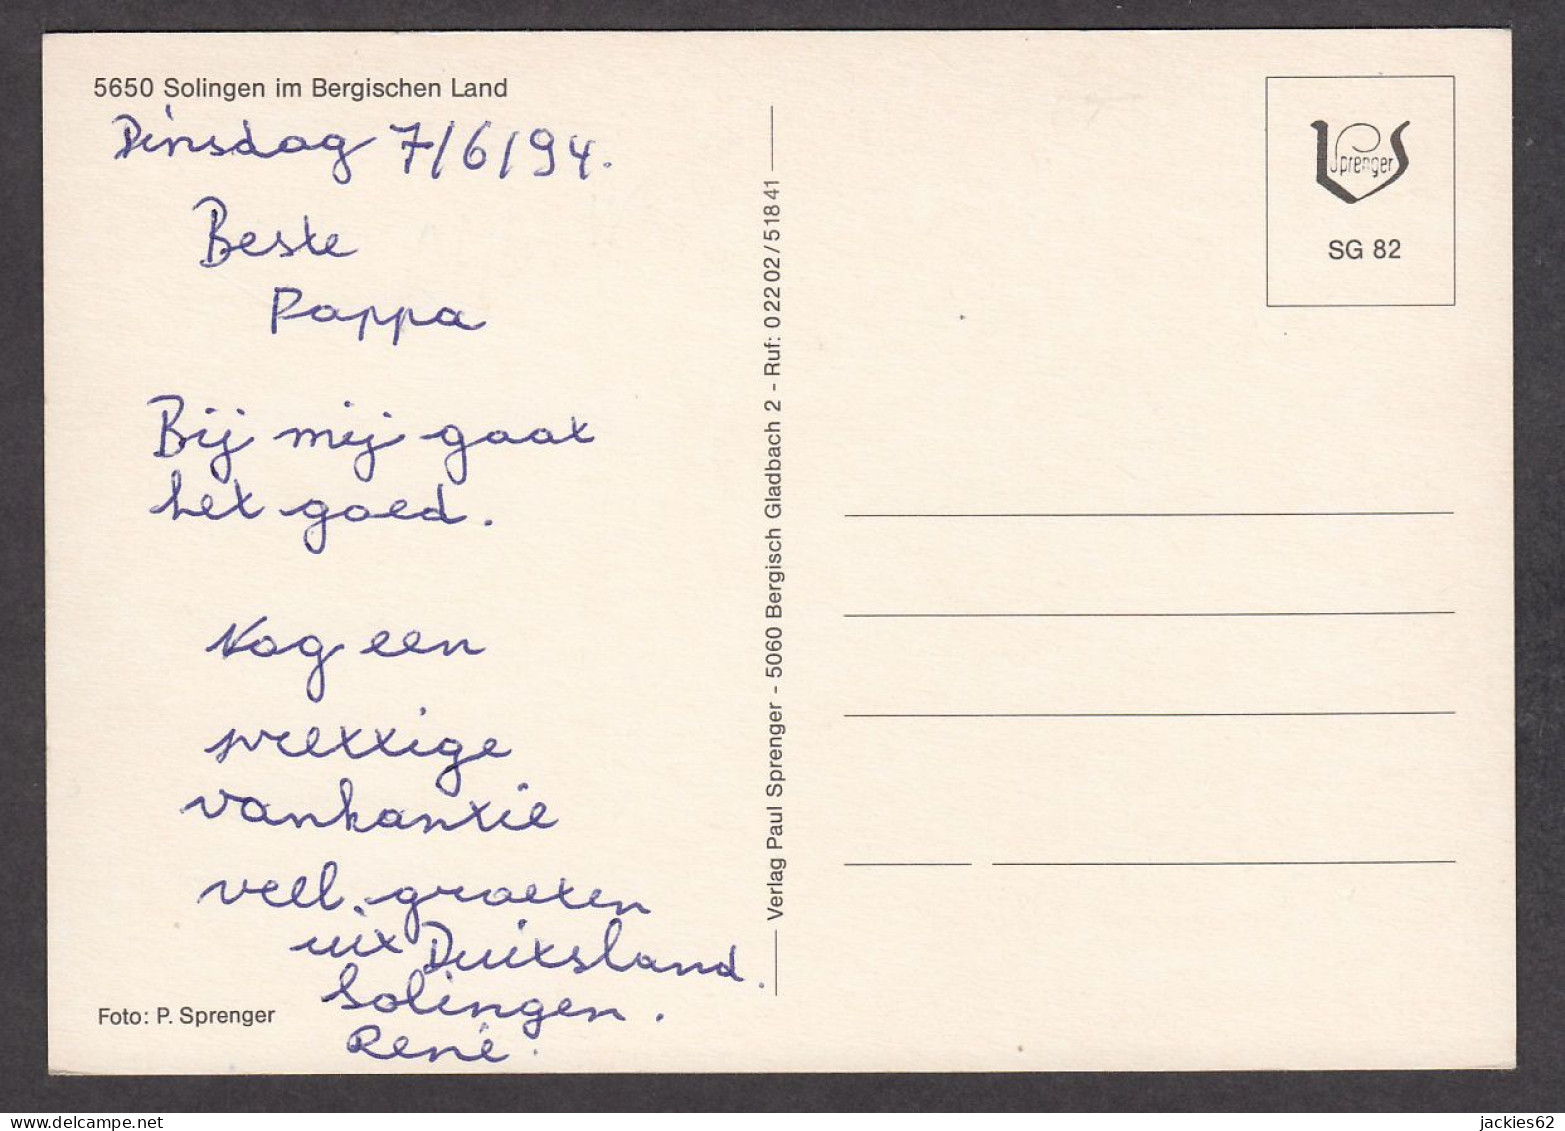 5650 Solingen im Bergischen Land
Dinsdag 7/6/94.
Beste
Pappa
Bij mij gaat
het goed.
Nog een
prettige
vankantie
veel groeten
uit Duitsland.
Solingen.
René.
Foto: P. Sprenger
Verlag Paul Sprenger - 5060 Bergisch Gladbach 2 - Ruf: 0 22 02 / 5 18 41
Sprenger
SG 82
jackies62